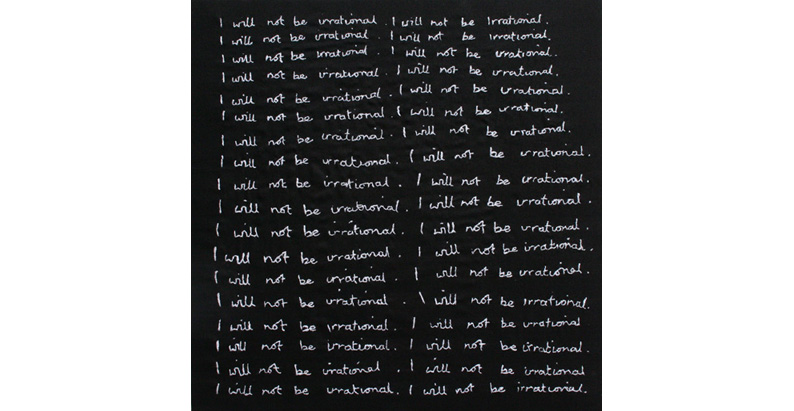 I will not be irrational. I will not be irrational.
I will not be irrational. I will not be irrational.
I will not be irrational. I will not be irrational.
I will not be irrational. I will not be irrational.
I will not be irrational. I will not be irrational.
I will not be irrational. I will not be irrational.
I will not be irrational. I will not be irrational.
I will not be irrational. I will not be irrational.
I will not be irrational. I will not be irrational.
I will not be irrational. I will not be irrational.
I will not be irrational. I will not be irrational.
I will not be irrational. I will not be irrational.
I will not be irrational. I will not be irrational.
I will not be irrational. I will not be irrational.
I will not be irrational. I will not be irrational
I will not be irrational. I will not be irrational.
I will not be irrational. I will not be irrational
I will not be irrational. I will not be irrational.